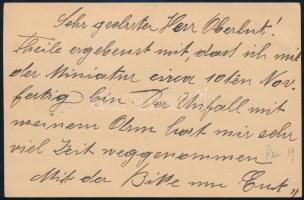 Sehr geehrter Herr Oberlent!
Theile ergebenst mit, dass ich mit
der Miniatur circa 10ten Nov.
fertig bin Der Unfall mit
meinem Ohm hat mir sehr
viel Zeit weggenommen
Mit der Bitte um Ent„